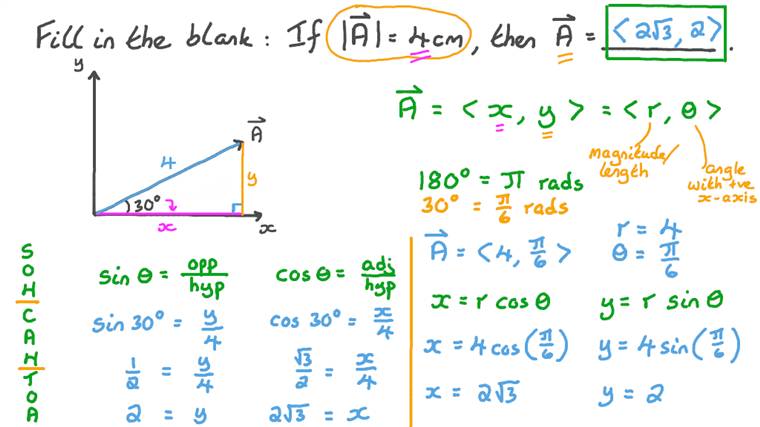 Fill in the blank : If |A⃗| = 4 cm, then A⃗ = <2√3, 2>.
y
A⃗
4
y
30°
x
x
A⃗ = <x, y> = <r, θ>
magnitude/
length
angle
with +ve
x-axis
180° = π rads
30° = π/6 rads
S
O
H
C
A
H
T
O
A
sin θ = opp/hyp
cos θ = adj/hyp
sin 30° = y/4
cos 30° = x/4
1/2 = y/4
√3/2 = x/4
2 = y
2√3 = x
A⃗ = <4, π/6>
r = 4
θ = π/6
x = r cos θ
y = r sin θ
x = 4 cos(π/6)
y = 4 sin(π/6)
x = 2√3
y = 2